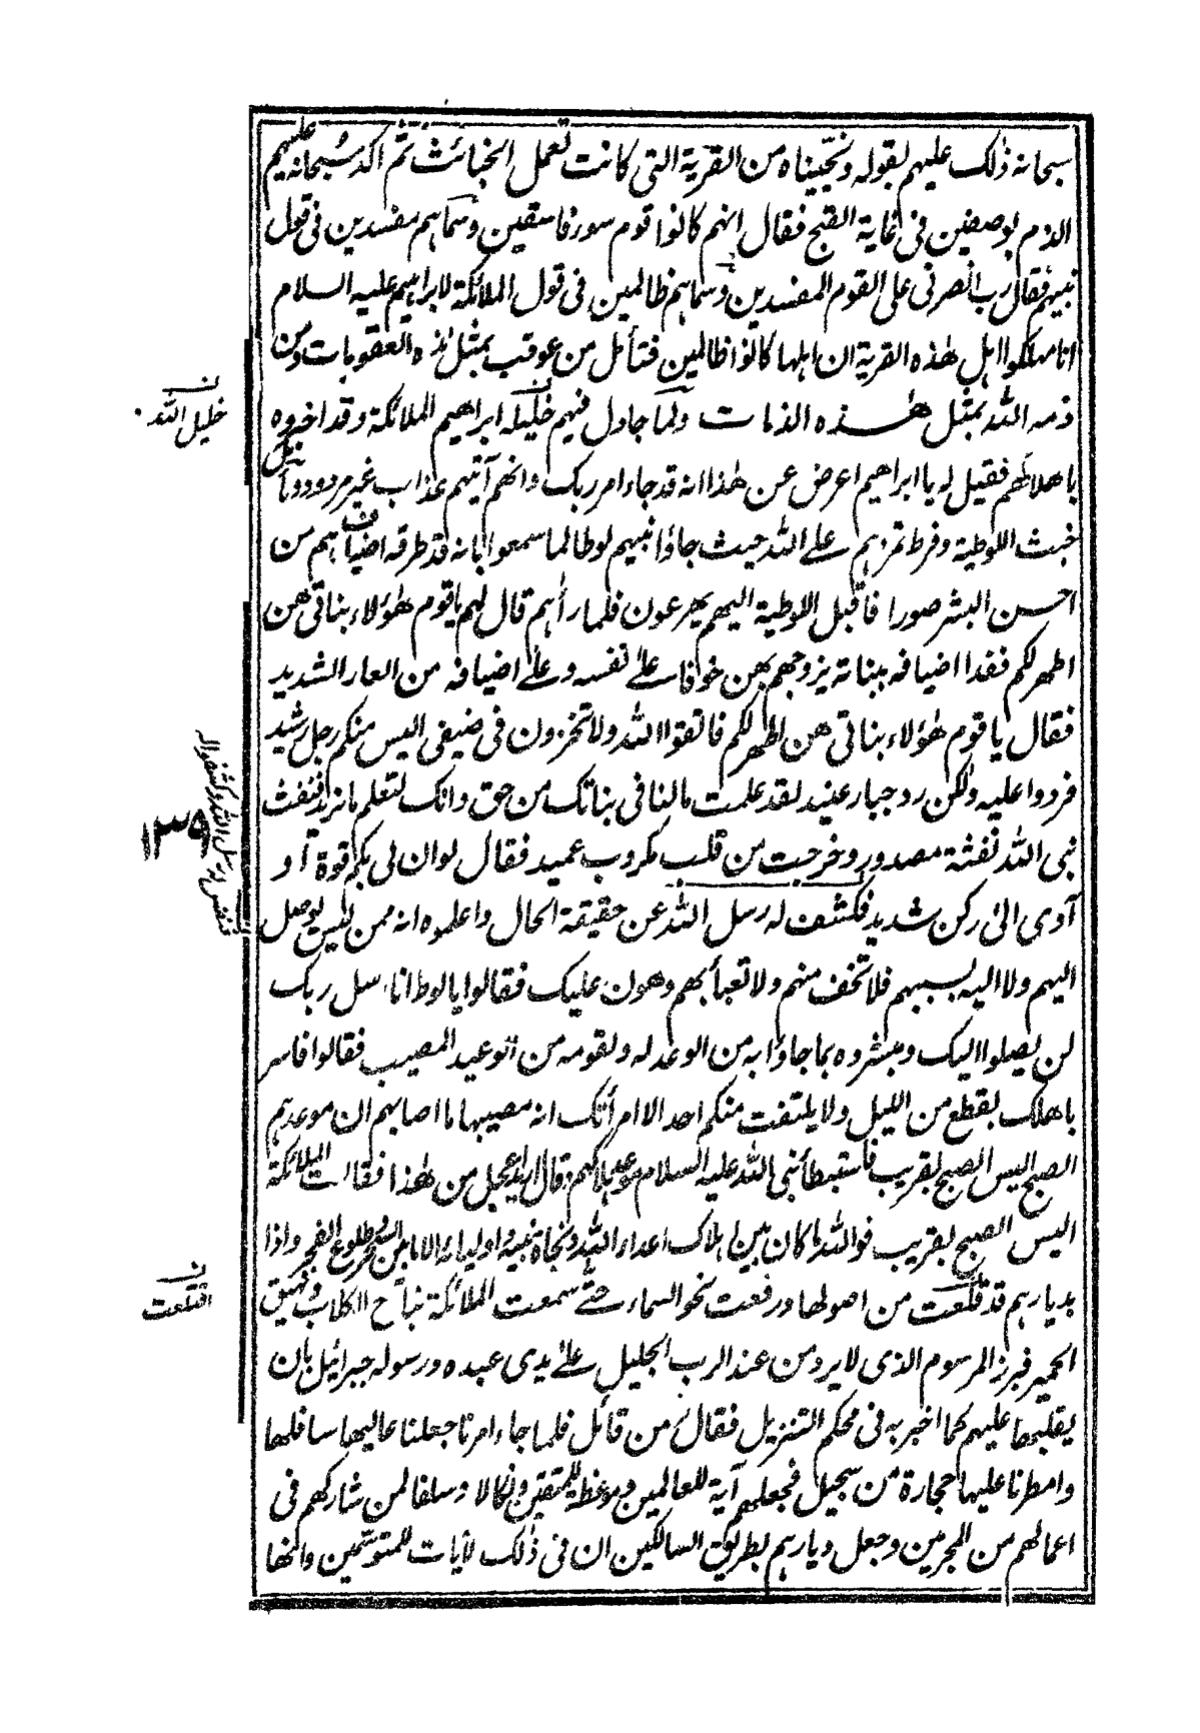 سبحانه ذلك عليهم بقوله ونجّيناه من القرية التي كانت تعمل الخبائث ثم اكد سبحانه عليهم
الذم بوصفين في غاية القبح فقال انهم كانوا قوم سوء فاسقين وسماهم مفسدين في قول
نبيهم فقال رب انصرني على القوم المفسدين وسماهم ظالمين في قول الملائكة لابراهيم عليه السلام
انا مهلكوا اهل هذه القرية ان اهلها كانوا ظالمين فتأمل من عوقب بمثل هذه العقوبات ومن
ذمه الله بمثل هذه الذمات ولما جادل فيهم خليله ابراهيم الملائكة وقد اخبروه
باهلاكهم فقيل له يا ابراهيم اعرض عن هذا انه قد جاء امر ربك وانهم آتيهم عذاب غير مردود وتأمل
خبث اللوطية وفرط تمردهم على الله حيث جاؤا نبيهم لوطا لما سمعوا بانه قد طرقه اضياف هم من
احسن البشر صورا فاقبل اللوطية اليهم يهرعون فلما رأهم قال لهم يا قوم هؤلاء بناتي هن
اطهر لكم ففدا اضيافه ببناته يزوجهم بهن خوفا على نفسه وعلى اضيافه من العار الشديد
فقال يا قوم هؤلاء بناتي هن اطهر لكم فاتقوا الله ولا تخزون في ضيفي اليس منكم رجل رشيد
فردوا عليه ولكن رد جبار عنيد لقد علمت ما لنا في بناتك من حق وانك لتعلم ما نريد فنفث
نبي الله نفثة مصدور وخرجت من قلب مكروب عميد فقال لو ان لي بكم قوة او
آوى الى ركن شديد فكشف له رسل الله عن حقيقة الحال واعلموه انه ممن ليس يوصل
اليهم ولا اليه بسببهم فلا تخف منهم ولا تعبأ بهم وهون عليك فقالوا يا لوط انا رسل ربك
لن يصلوا اليك وبشروه بما جاؤا به من الوعد له ولقومه من الوعيد المصيب فقالوا فاسر
باهلك بقطع من الليل ولا يلتفت منكم احد الا امرأتك انه مصيبها ما اصابهم ان موعدهم
الصبح اليس الصبح بقريب فاستبطأ نبي الله عليه السلام موعد هلاكهم وقال اريد اعجل من هذا فقالت الملائكة
اليس الصبح بقريب فوالله ما كان بين اهلاك اعداء الله ونجاة نبيه واوليائه الا ما بين السحر وطلوع الفجر واذا
بديارهم قد قلعت من اصولها ورفعت نحو السماء حتى سمعت الملائكة نباح الكلاب ونهيق
الحمير فبرز المرسوم الذي لا يرد من عند الرب الجليل على يدى عبده ورسوله جبرائيل بان
يقلبها عليهم كما اخبر به في محكم التنزيل فقال من قائل فلما جاء امرنا جعلنا عاليها سافلها
وامطرنا عليها حجارة من سجيل فجعلهم آية للعالمين وموعظة للمتقين ونكالا وسلفا لمن شاركهم في
اعمالهم من المجرمين وجعل ديارهم بطريق السالكين ان في ذلك لآيات للمتوسمين وانها
خليل الله
١٣٩
اقتلعت